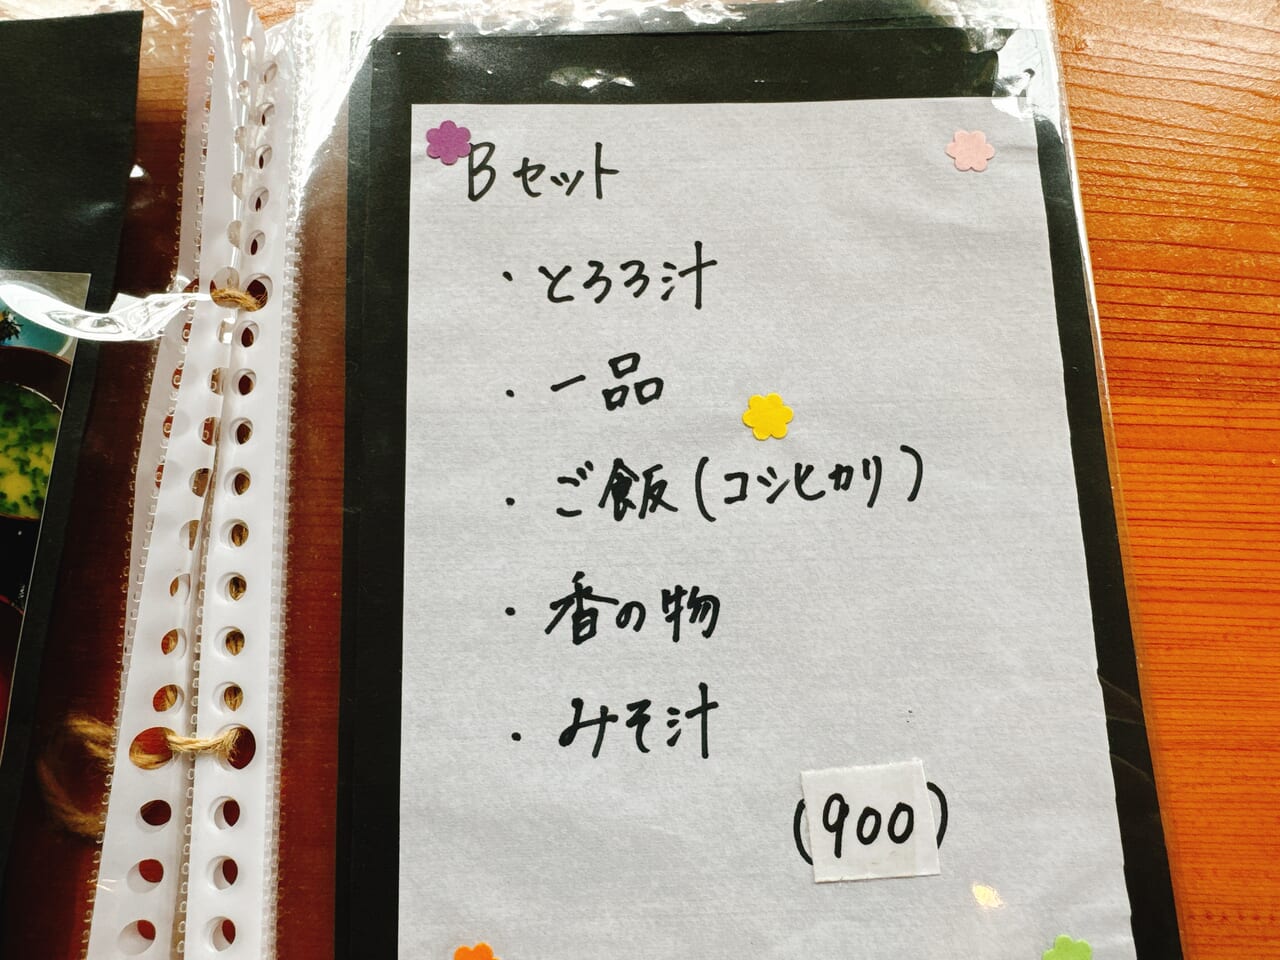 Bセット
・とろろ汁
・一品
・ご飯(コシヒカリ)
・香の物
・みそ汁
(900)